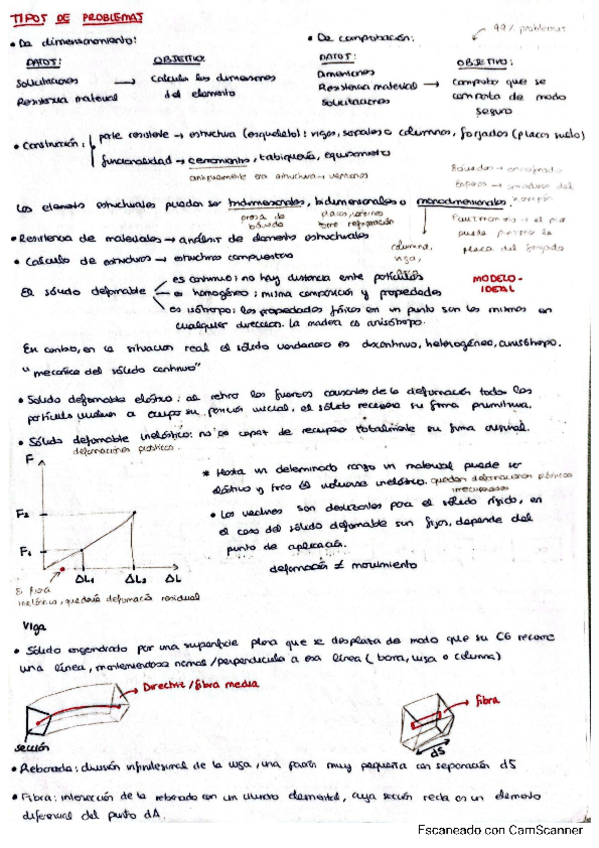 TIPOS DE PROBLEMAS
• De dimensionamiento:
• De comprobación:
99% problemas
DATOS:
OBJETIVO:
Solicitaciones → Calcular las dimensiones
Resistencia material
del elemento
DATOS:
OBJETIVO:
Dimensiones
Resistencia material → Comprobar que se
Solicitaciones
comporta de modo
seguro
• Construcción: parte resistente → estructura (esqueleto): vigas, soportes o columnas, forjados (placas suelo)
funcionalidad → cerramiento, tabiquería, equipamiento
antiguamente era estructura → ventanas
Los elementos estructurales pueden ser tridimensionales, bidimensionales o monodimensionales.
presa de
bóveda
placas,
torre refrigeración
columna,
viga,
puede
placa del forjado
• Resistencia de materiales → análisis de elementos estructurales
• Calculo de estructuras → estructuras compuestas
El sólido deformable
es continuo: no hay distancia entre partículas
es homogéneo: misma composición y propiedades
es isótropo: las propiedades físicas en un punto son las mismas en
cualquier dirección. la madera es anisótropo.
MODELO-
IDEAL
En cambio, en la situación real el sólido verdadero es discontinuo, heterogéneo, anisótropo.
"mecánica del sólido continuo"
• Sólido deformable elástico: al retirar las fuerzas causantes de la deformación todas las
partículas vuelven a ocupar su posición inicial, el sólido recupera su forma primitiva.
• Sólido deformable inelástico: no es capaz de recuperar totalmente su forma original.
deformaciones plásticas
F
F2
F1
ΔL1 ΔL2 ΔL
* Hasta un determinado rango un material puede ser
elástico y tras él volverse inelástico. quedan deformaciones plásticas
irrecuperables
• Los vectores son deslizantes para el sólido rígido, en
el caso del sólido deformable son fijos, depende del
punto de aplicación.
deformación ≠ movimiento
Si fuera
inelástico, quedaría deformación residual
Viga
• Sólido engendrado por una superficie plana que se desplaza de modo que su CG recorre
una línea, manteniéndose normal/perpendicular a esa línea (barra, viga o columna)
Directriz/fibra media
sección
fibra
dS
• Rebanada: división infinitesimal de la viga, una porción muy pequeña con separación dS
• Fibra: intersección de la rebanada con un cilindro elemental, cuya sección recta es un elemento
diferencial del punto dA.
Escaneado con CamScanner